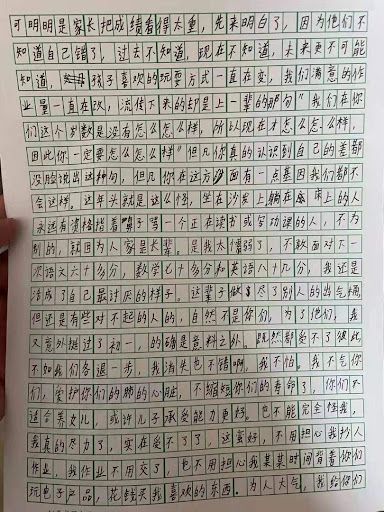 可明明是家长把成绩看得太重，先来明白了，因为他们不
知道自己错了，过去不知道，现在不知道，未来更不可能
知道，孩子喜欢的玩耍方式一直在变，我们满意的作
业量一直在改，流传下来的却是上一辈的那句“我们在你
们这个岁数是没有怎么怎么样，所以现在才怎么怎么样，
因此你一定要怎么怎么样”但凡你真的认识到自己的差都
没脸说出这种句，但凡你在这方面有一点基因我们都不
会这样。这年头就是这么怪，坐在沙发上躺在床上的人
永远有资格指着鼻子骂一个正在读书或写功课的人，不为
别的，就因为人家是长辈。是我太懦弱了，不敢面对下一
次语文六十多分，数学七十多分和英语八十几分，我还是
活成了自己最讨厌的样子。这辈子做尽了别人的出气桶
但还是有些对不起的人的，自然不是你们，为了他们，我
又意外挺过了初一，的确是意料之外。既然都受不了彼此
不如我们各退一步，我消失也不错啊，我不怕。我不气你
们，爱护你们的肺的心脏，不缩短你们的寿命了，你们不
适合养女儿，或许儿子承受能力更好，也不能完全怪我，
我真的尽力了，实在受不了了，这真好，不用担心我抄人
作业，我作业不用交了，也不用担心我某某时间背着你们
玩电子产品，花钱买我喜欢的东西。为人大气，我给你们